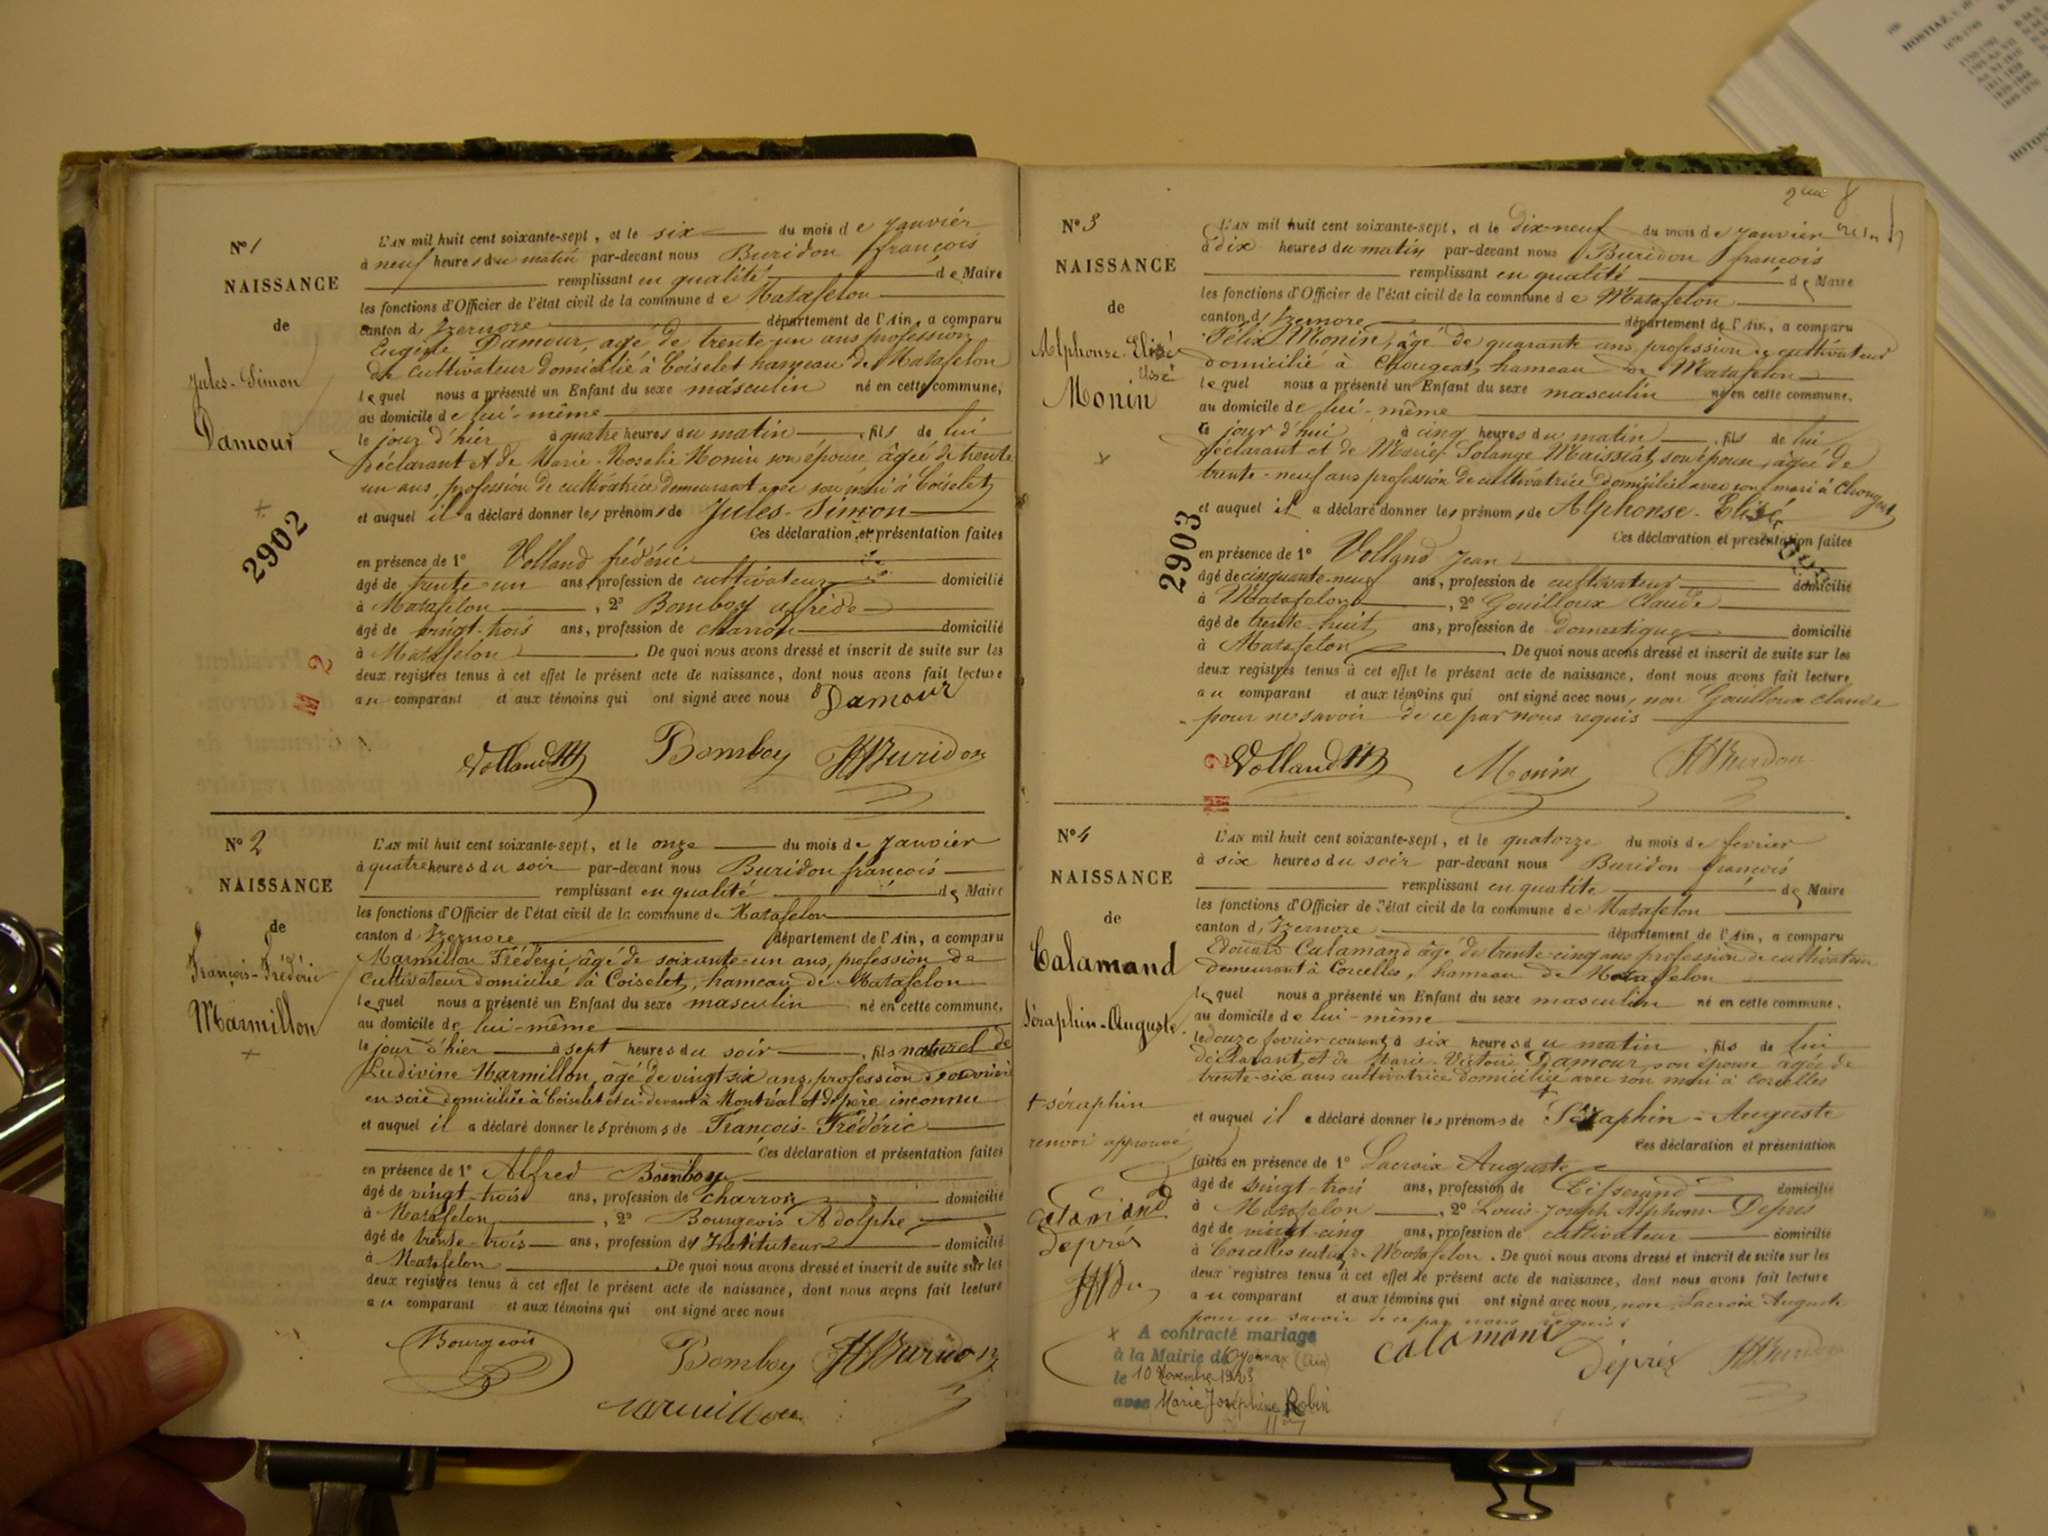 N° 1
NAISSANCE
de
Jules-Simon
Damour
+
2902
M 2
L'AN mil huit cent soixante-sept, et le six du mois de janvier
à neuf heures du matin par-devant nous Buridon françois
remplissant en qualité de Maire
les fonctions d'Officier de l'état civil de la commune de Matafelon
canton d'Izernore département de l'Ain, a comparu
Eugène Damour, agé de trente un ans profession
de cultivateur domicilié à Coiselet hameau de Matafelon
lequel nous a présenté un Enfant du sexe masculin né en cette commune,
au domicile de lui-même
le jour d'hier à quatre heures du matin, fils de lui
déclarant et de Marie-Roselie Monin son épouse âgée de trente
un ans, profession de cultivatrice demeurant avec son mari à Coiselet
et auquel il a déclaré donner les prénoms de Jules-Simon
Ces déclaration et présentation faites
en présence de 1° Volland frédéric
âgé de trente un ans, profession de cultivateur domicilié
à Matafelon, 2° Bomboy alfrède
âgé de vingt-trois ans, profession de charron domicilié
à Matafelon. De quoi nous avons dressé et inscrit de suite sur les
deux registres tenus à cet effet le présent acte de naissance, dont nous avons fait lecture
au comparant et aux témoins qui ont signé avec nous Damour
Volland Bomboy Buridon
N° 2
NAISSANCE
de
François-Frédéric
Marmillon
+
L'AN mil huit cent soixante-sept, et le onze du mois de janvier
à quatre heures du soir par-devant nous Buridon françois
remplissant en qualité de Maire
les fonctions d'Officier de l'état civil de la commune de Matafelon
canton d'Izernore département de l'Ain, a comparu
Marmillon Frédéric âgé de soixante-un ans, profession de
cultivateur domicilié à Coiselet, hameau de Matafelon
lequel nous a présenté un Enfant du sexe masculin né en cette commune,
au domicile de lui-même
le jour d'hier à sept heures du soir, fils naturel de
Ludivine Marmillon, âgé de vingt-six ans, profession d'ouvrière
en soie domiciliée à Coiselet et ci-devant à Montréal et de père inconnu
et auquel il a déclaré donner les prénoms de François-Frédéric
Ces déclaration et présentation faites
en présence de 1° Alfred Bomboy
âgé de vingt-trois ans, profession de charron domicilié
à Matafelon, 2° Bourgeois Adolphe
âgé de trente-trois ans, profession d'Instituteur domicilié
à Matafelon. De quoi nous avons dressé et inscrit de suite sur les
deux registres tenus à cet effet le présent acte de naissance, dont nous avons fait lecture
au comparant et aux témoins qui ont signé avec nous
Bourgeois Bomboy Buridon
Marmillon
N° 3
NAISSANCE
de
Alphonse-Elisé
Monin
x
2903
M 2
L'AN mil huit cent soixante-sept, et le dix-neuf du mois de janvier
à dix heures du matin par-devant nous Buridon françois
remplissant en qualité de Maire
les fonctions d'Officier de l'état civil de la commune de Matafelon
canton d'Izernore département de l'Ain, a comparu
Félix Monin, âgé de quarante ans, profession de cultivateur
domicilié à Chougeat, hameau de Matafelon
lequel nous a présenté un Enfant du sexe masculin né en cette commune.
au domicile de lui-même
ce jour d'hui à cinq heures du matin, fils de lui
déclarant et de Marie Solange Maissiat, son épouse, âgée de
trente-neuf ans profession de cultivatrice domiciliée avec son mari à Chougeat
et auquel il a déclaré donner les prénoms de Alphonse-Elisé
Ces déclaration et présentation faites
en présence de 1° Volland Jean
âgé de cinquante-neuf ans, profession de cultivateur domicilié
à Matafelon, 2° Gouilloux Claude
âgé de trente-huit ans, profession de Domestique domicilié
à Matafelon. De quoi nous avons dressé et inscrit de suite sur les
deux registres tenus à cet effet le présent acte de naissance, dont nous avons fait lecture
au comparant et aux témoins qui ont signé avec nous, non Gouilloux Claude
pour ne savoir de ce par nous requis
Volland Monin Buridon
N° 4
NAISSANCE
de
Calamand
Séraphin-Auguste
+ séraphin
renvoi approuvé
calamand
Déprés
L'AN mil huit cent soixante-sept, et le quatorze du mois de fevrier
à six heures du soir par-devant nous Buridon françois
remplissant en qualité de Maire
les fonctions d'Officier de l'état civil de la commune de Matafelon
canton d'Izernore département de l'Ain, a comparu
Edouard Calamand âgé de trente-cinq ans profession de cultivateur
demeurant à Corcelles, hameau de Matafelon
lequel nous a présenté un Enfant du sexe masculin né en cette commune.
au domicile de lui-même
le douze fevrier courant à six heures du matin, fils de lui
déclarant, et de Marie-Victoire Damour, son épouse âgée de
trente-six ans cultivatrice domiciliée avec son mari à Corcelles
et auquel il a déclaré donner les prénoms de + Séraphin-Auguste
Ces déclaration et présentation
faites en présence de 1° Lacroix Auguste
âgé de vingt-trois ans, profession de Tisserand domicilié
à Matafelon, 2° Louis-Joseph Alphonse Déprés
âgé de vingt-cinq ans, profession de cultivateur domicilié
à Corcelles de Matafelon. De quoi nous avons dressé et inscrit de suite sur les
deux registres tenus à cet effet le présent acte de naissance, dont nous avons fait lecture
au comparant et aux témoins qui ont signé avec nous, non Lacroix Auguste
pour ne savoir de ce par nous requis
calamand Déprés Buridon
x A contracté mariage
à la Mairie de Oyonnax (Ain)
le 10 Novembre 1923
avec Marie Joséphine Robin